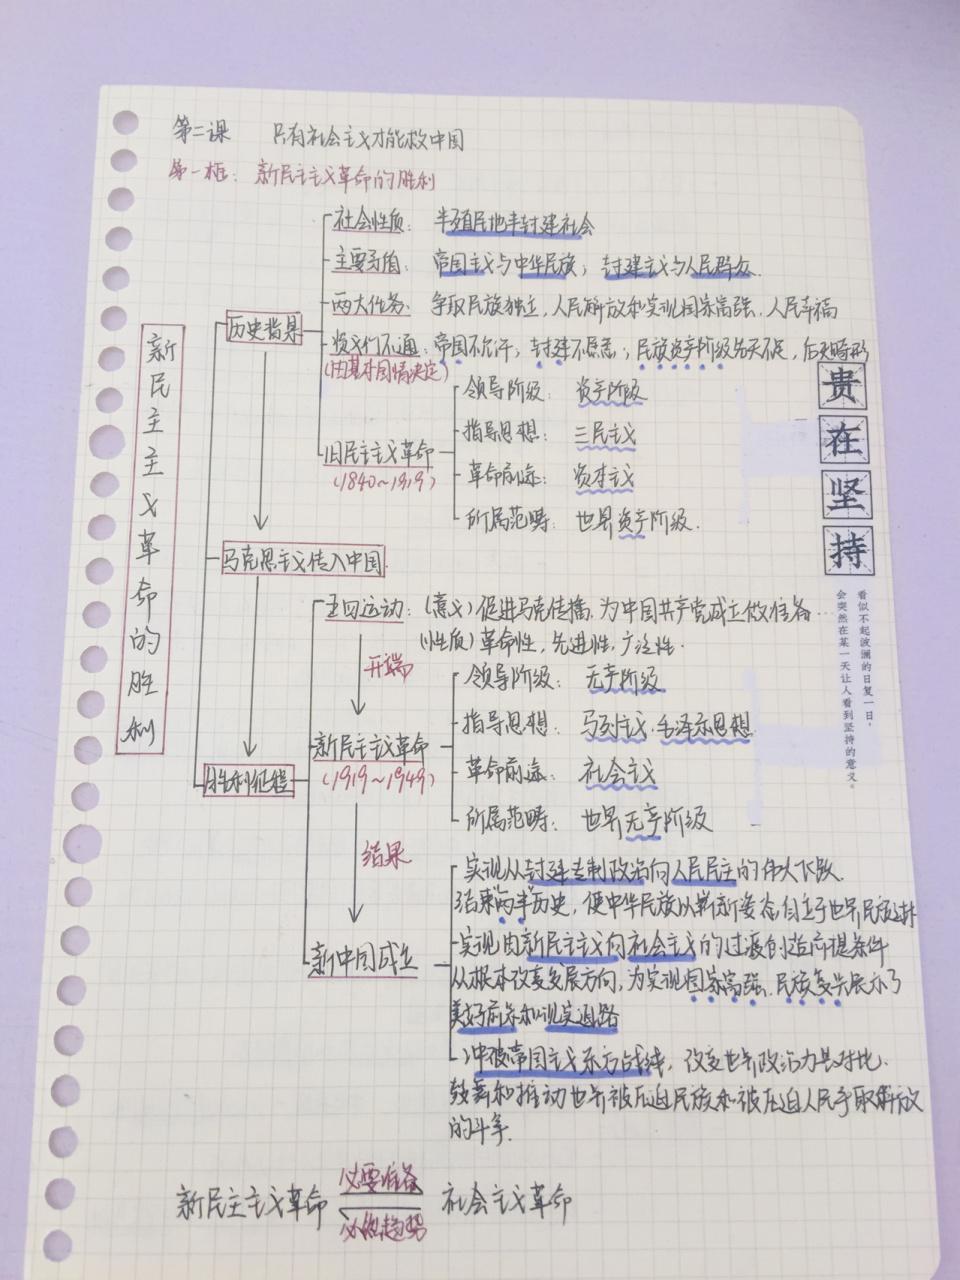 第二课 只有社会主义才能救中国
第一框：新民主主义革命的胜利
新民主主义革命的胜利
历史背景
社会性质：半殖民地半封建社会
主要矛盾：帝国主义与中华民族；封建主义与人民群众.
两大任务：争取民族独立，人民解放和实现国家富强，人民幸福
资义行不通：帝国不允许；封建不愿意；民族资产阶级先天不足，后天畸形
(由基本国情决定)
旧民主主义革命
(1840～1919)
领导阶级：资产阶级
指导思想：三民主义
革命前途：资本主义
所属范畴：世界资产阶级.
马克思主义传入中国
胜利征程
五四运动：(意义)促进马克传播，为中国共产党成立做准备
(性质)革命性，先进性，广泛性.
开端
新民主主义革命
(1919～1949)
领导阶级：无产阶级
指导思想：马列主义.毛泽东思想
革命前途：社会主义
所属范畴：世界无产阶级
结果
新中国成立
实现从封建专制政治向人民民主的伟大飞跃.
结束"两半"历史，使中华民族以崭新姿态自立于世界民族之林
实现由新民主主义向社会主义的过渡创造前提条件
从根本改变发展方向，为实现国家富强.民族复兴展示了
美好前景和现实道路
冲破帝国主义东方战线，改变世界政治力量对比.
鼓舞和推动世界被压迫民族和被压迫人民争取解放
的斗争.
新民主主义革命 必要准备 社会主义革命
必然趋势
贵在坚持
看似不起波澜的日复一日，
会突然在某一天让人看到坚持的意义。